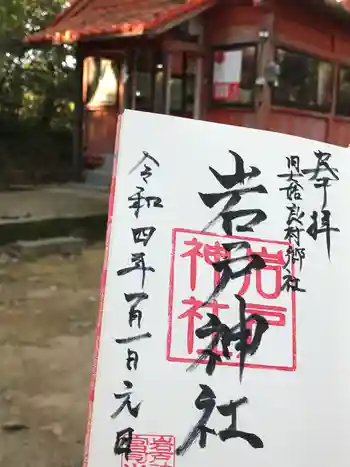 奉拝
旧姶良村郷社
岩戸神社
岩戸
神社
令和四年一月一日元日